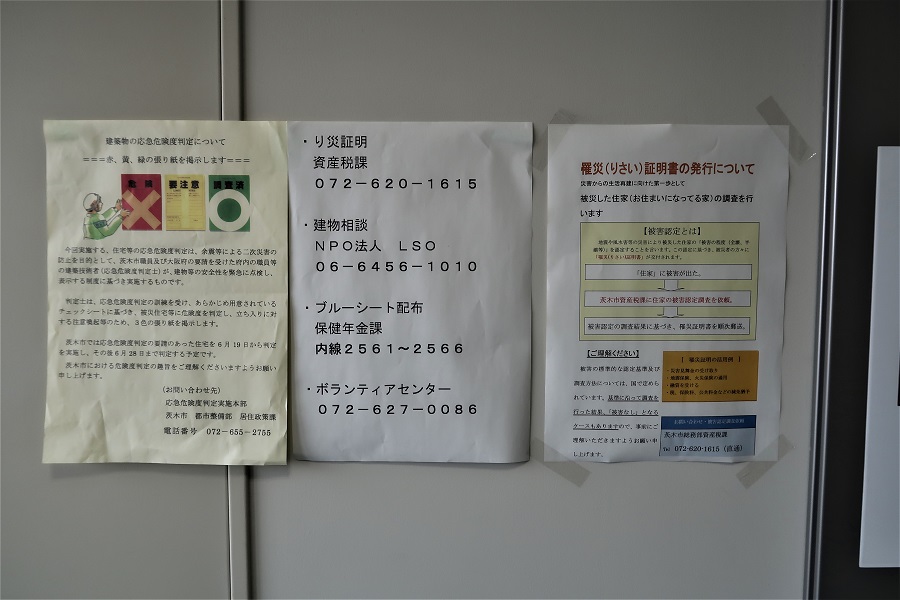 建築物の応急危険度判定について
===赤、黄、緑の張り紙を掲示します===
危険
要注意
調査済
今回実施する、住宅等の応急危険度判定は、余震等による二次災害の
防止を目的として、茨木市職員及び大阪府の要請を受けた府内の職員等
の建築技術者(応急危険度判定士)が、建物等の安全性を緊急に点検し、
表示する制度に基づき実施するものです。
判定士は、応急危険度判定の訓練を受け、あらかじめ用意されている
チェックシートに基づき、被災住宅等に危険度を判定し、立ち入りに対
する注意喚起等のため、3色の張り紙を掲示します。
茨木市では応急危険度判定の要請のあった住宅を6月19日から判定
を実施し、その後6月28日まで判定する予定です。
茨木市における危険度判定の趣旨をご理解くださいますようお願い
申し上げます。
(お問い合わせ先)
応急危険度判定実施本部
茨木市 都市整備部 居住政策課
電話番号 072-655-2755
・り災証明
資産税課
072-620-1615
・建物相談
NPO法人 LSO
06-6456-1010
・ブルーシート配布
保健年金課
内線2561~2566
・ボランティアセンター
072-627-0086
罹災(りさい)証明書の発行について
災害からの生活再建に向けた第一歩として
被災した住家(お住まいになってる家)の調査を行
います
【被害認定とは】
地震や風水害等の災害により被災した住家の「被害の程度(全壊、半
壊等)」を認定することを言います。この認定に基づき、被災者の方々に
「罹災(りさい)証明書」が交付されます。
「住家」に被害が出た。
茨木市資産税課に住家の被害認定調査を依頼。
被害認定の調査結果に基づき、罹災証明書を順次郵送。
【ご理解ください】
被害の標準的な認定基準及び
調査方法については、国で定めら
れています。基準に沿って調査を
行った結果、「被害なし」となる
ケースもありますので、事前にご
理解いただきますようお願い申
し上げます。
【 罹災証明の活用例 】
・災害見舞金の受け取り
・地震保険、火災保険の適用
・融資を受ける
・税、保険料、公共料金などの減免猶予
お問い合わせ・被害認定調査依頼
茨木市総務部資産税課
Tel 072-620-1615(直通)